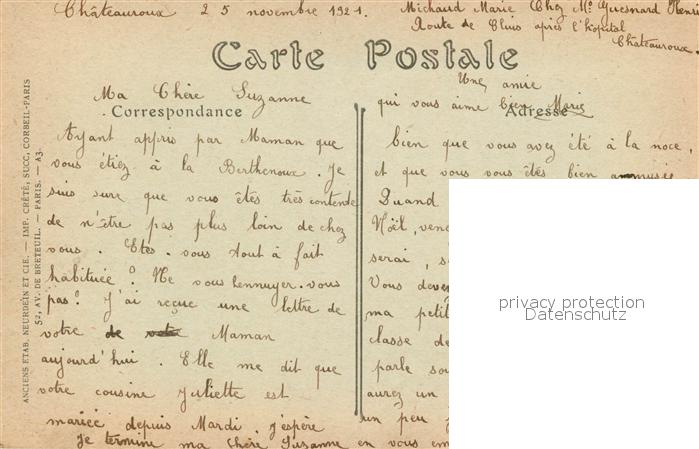 Châteauroux 25 novembre 1921.
Michaud Marie Chez Mr Guesnard Henri
Route de Cluis après l'hôpital
Châteauroux.
Carte Postale
Correspondance
Ma Chère Suzanne
Ayant appris par Maman que
vous étiez à la Berthenoux. Je
suis sure que vous êtes très contende
de n'être pas plus loin de chez
vous. Etes-vous tout à fait
habituée? Ne vous lennuyer-vous
pas? J'ai reçue une lettre de
votre de votre Maman
aujourd'hui. Elle me dit que
votre cousine Juliette est
mariée depuis Mardi. J'éspère
Adresse
bien que vous avez été à la noce,
et que vous vous êtes bien amusée
Quand
Noël,
serai,
Vous
ma
classe de
parle
aurez un
un peu
Je termine ma chère Suzanne en vous
Une amie
qui vous aime bien Marie
ANCIENS ETAB. NEURDEIN ET CIE. — IMP. CRÉTÉ, SUCC, CORBEIL-PARIS
52, AV. DE BRETEUIL. — PARIS. — A3.
privacy protection
Datenschutz